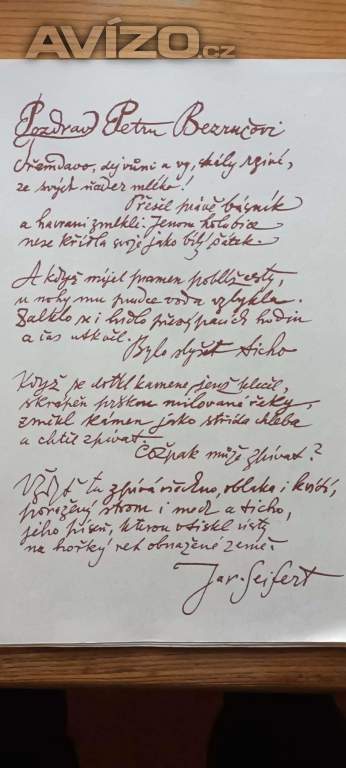 AVÍZO.cz
Pozdrav Petru Bezručovi
Křemdavo, dej vůni a vy, skály
ze svých ňader mléko!
Přešel právě básník
a havrani zmlkli. Jenom holubice
nese křídla svoje jako bílý šátek.
A když míjel pramen poblíž cesty,
u nohy mu prudce voda vzlykla.
Zalklo se i hrdlo přesýpacích hodin
a čas utkvěl.
Bylo slyšet ticho
Když se dotkl kamene jenž klečel,
skrápěn prškou milované řeky,
změkl kámen jako střída chleba
a chtěl zpívat.
Cožpak může zpívat?
Vždyť tu zpívá všechno, oblaka i kvítí,
poražený strom i meč a ticho,
jeho píseň, kterou vtiskl v ústy
na hořký ret obnažené země.
Jar. Seifert